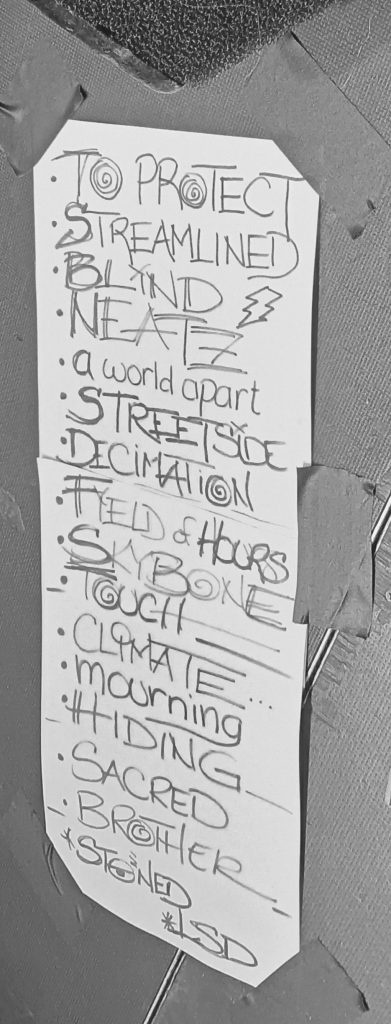 · TO PROTECT
· STREAMLINED
· BLIND
· NEATZ
· a world apart
· STREETSIDE
· DECIMATION
· FIELD of HOURS
· SKYBONE
· TOUCH
· CLIMATE...
· mourning
· HIDING
· SACRED
· BROTHER
* STONED
* LSD